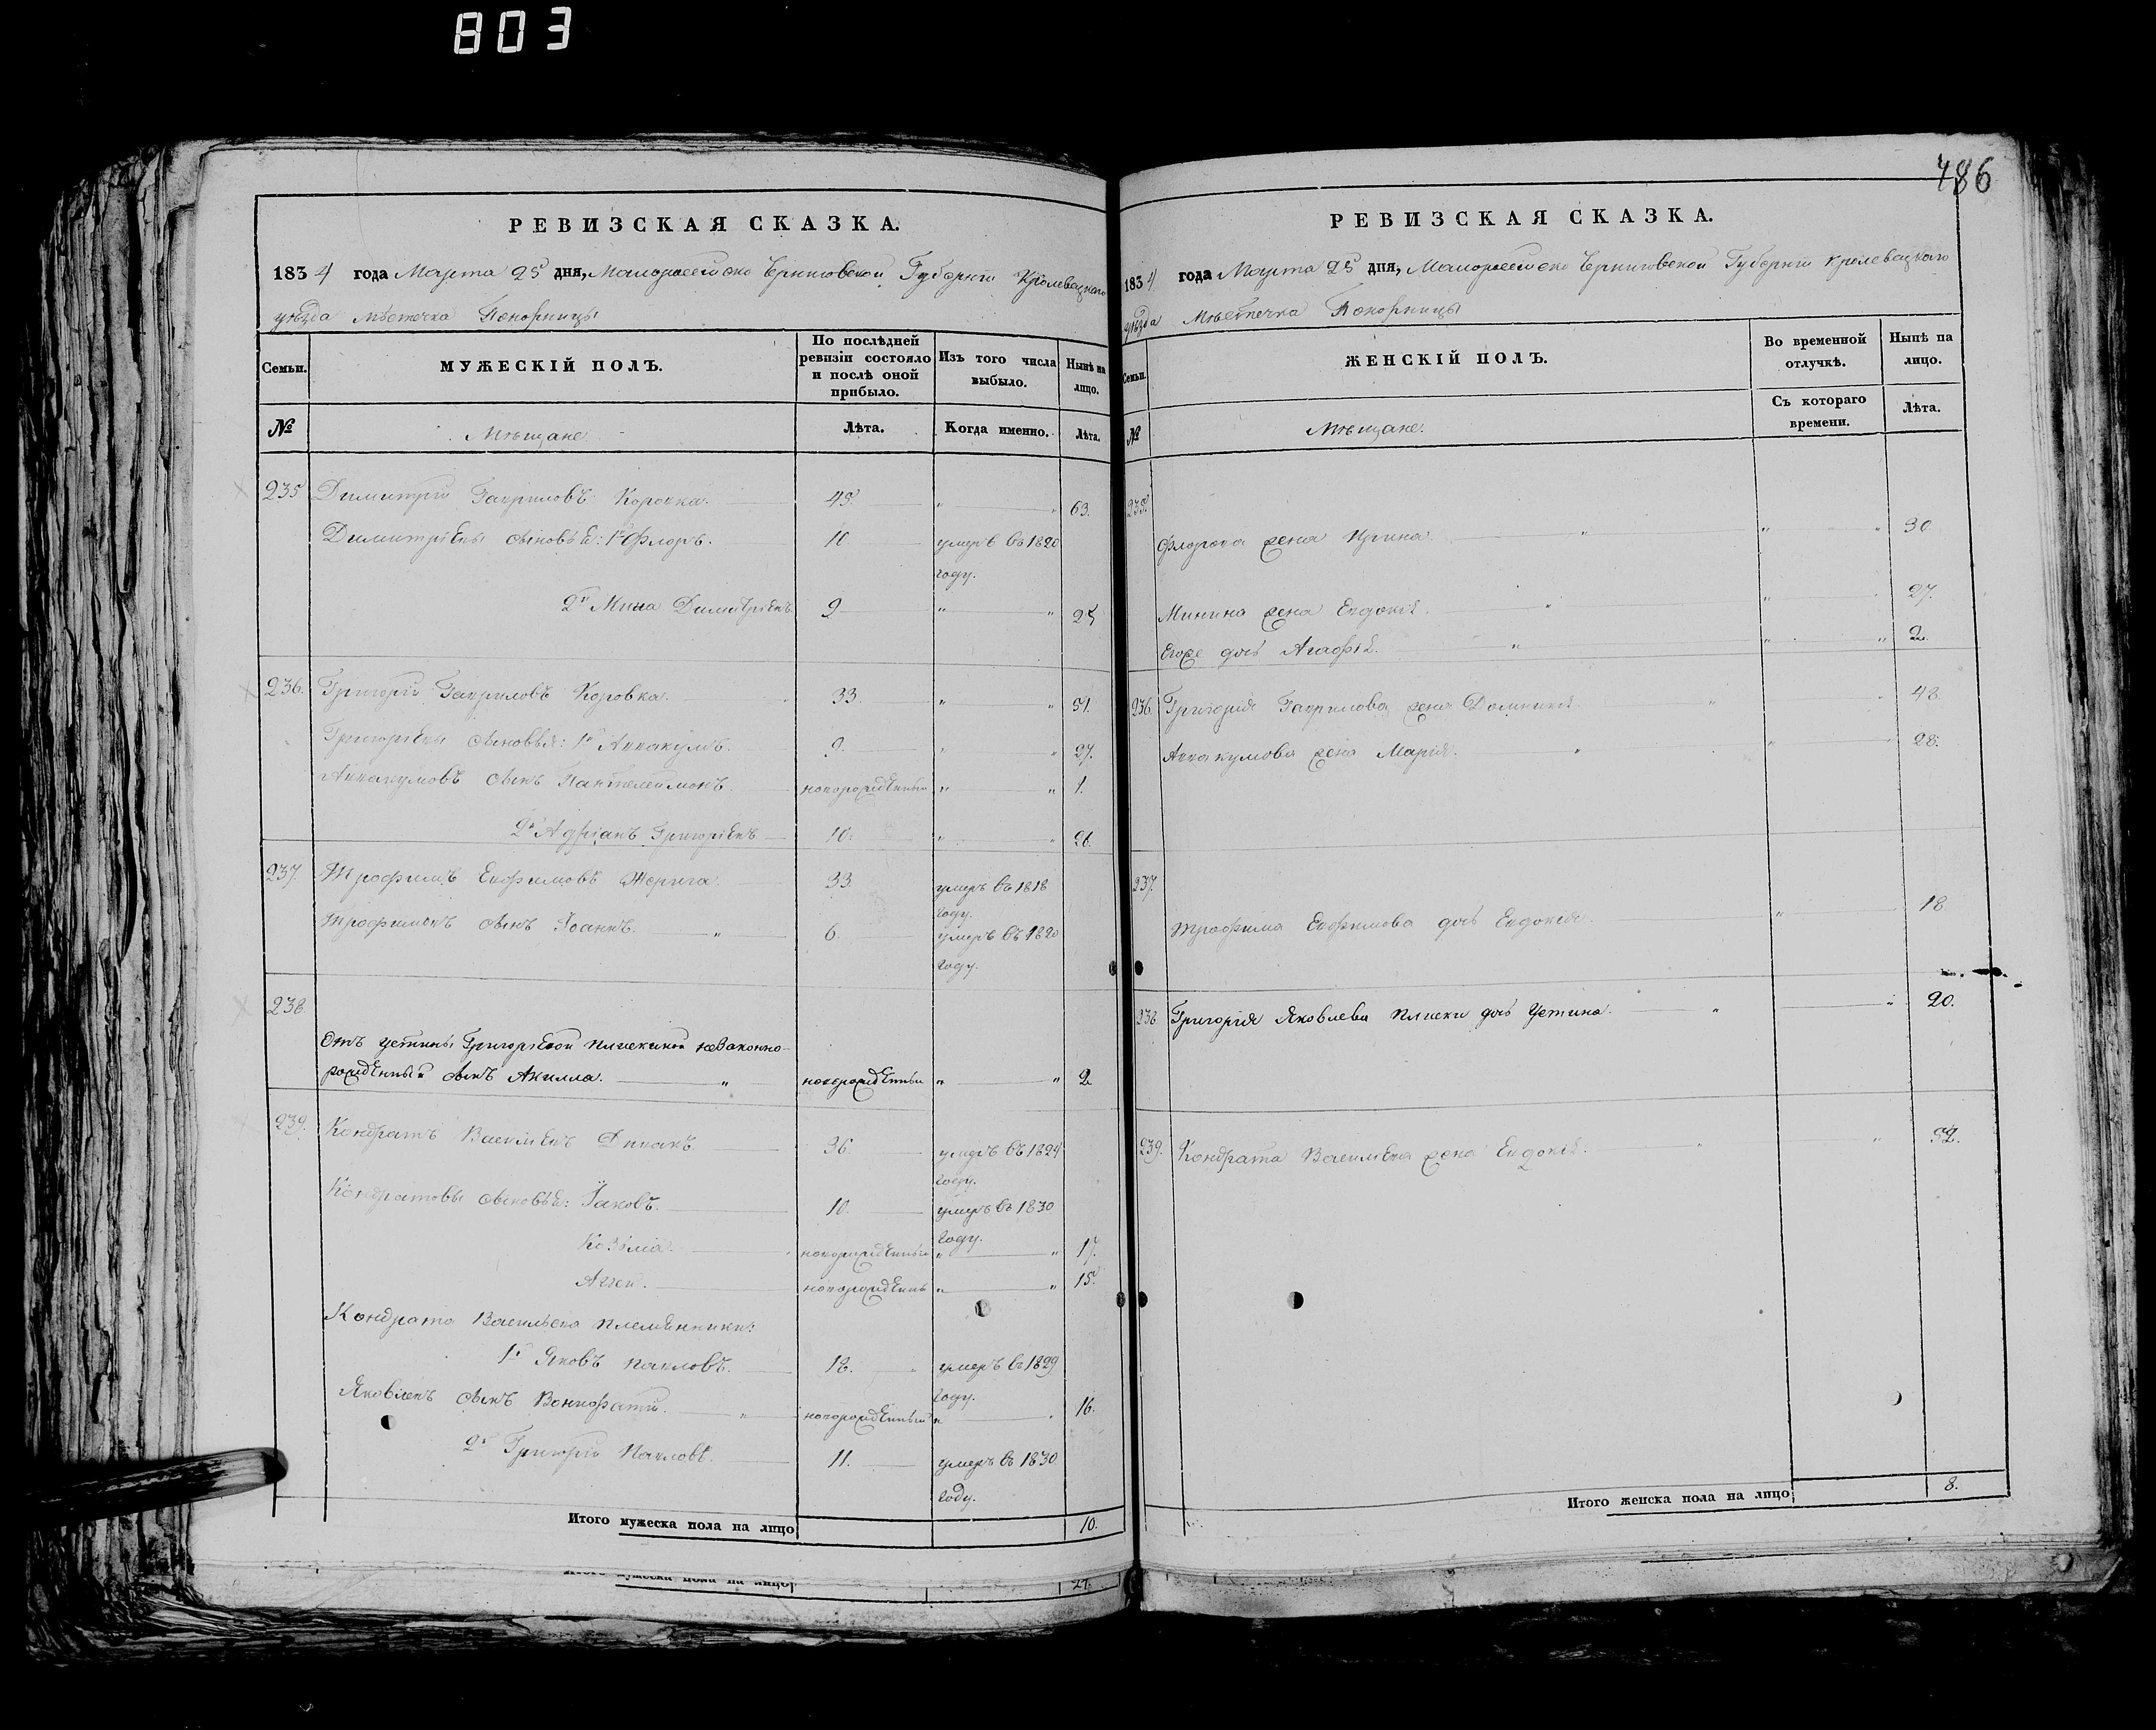 803
486
РЕВИЗСКАЯ СКАЗКА.
1834 года Марта 25 дня, Малороссійско Черниговской Губерніи Кролевецкаго
уѣзда мѣстечка Понорницы
Семьи.
МУЖЕСКІЙ ПОЛЪ.
По послѣдней ревизіи состояло и послѣ оной прибыло.
Изъ того числа выбыло.
Нынѣ на лицо.
№
Мѣщане.
Лѣта.
Когда именно.
Лѣта.
235 Димитрій Гавриловъ Коровка. 45. " " 63.
Димитріевы сыновья: 1й Флоръ. 10 умеръ въ 1820
году.
2й Мина Димитріевъ 9 " " 25
236. Григорій Гавриловъ Коровка. 33. " " 51.
Григоріевы сыновья: 1й Аввакумъ. 9. " 27.
Аввакумовъ сынъ Пантелеймонъ. новорожденный " " 1.
2й Адріанъ Григоріевъ 10. " " 28.
237. Трофимъ Евфимовъ 33. умеръ въ 1818
году.
Трофимовъ сынъ Іоаннъ. " 6. умеръ въ 1820
году.
238.
Отъ Устины Григоріевой Плискиной незаконно-
рожденный сынъ Акилла. " новорожденный " " 2
239. Кондратъ Васильевъ 36. умеръ въ 1824
году.
Кондратовы сыновья: Іаковъ. 10. умеръ въ 1830
году.
Козьма новорожденный " " 17.
Аггей. новорожденный " " 15.
Кондрата Васильева племянники:
1й Яковъ Павловъ. 18. умеръ въ 1829
году.
Яковлевъ сынъ Вонифатій. " новорожденный " 16.
2й Григорій Павловъ. 11. умеръ въ 1830
году.
Итого мужеска пола на лицо 10.
Итого мужеска пола на лицо
РЕВИЗСКАЯ СКАЗКА.
1834 года Марта 25 дня, Малороссійско Черниговской Губерніи Кролевецкаго
уѣзда Мѣстечка Понорницы
Семьи.
ЖЕНСКІЙ ПОЛЪ.
Во временной отлучкѣ.
Нынѣ на лицо.
№
Мѣщане.
Съ котораго времени.
Лѣта.
235.
Флорова жена Ирина " " " 30
Минина жена Евдокія. " " " 27.
Егоже дочь Агафія. " " " 2.
236. Григорія Гаврилова жена Домникія " " 48
Аввакумова жена Марія. " " " 28.
237.
Трофима Евфимова дочь Евдокія. " 18
238. Григорія Яковлева Плиски дочь Устина. " " 20.
239. Кондрата Васильева жена Евдокія. " " 52.
Итого женска пола на лицо 8.